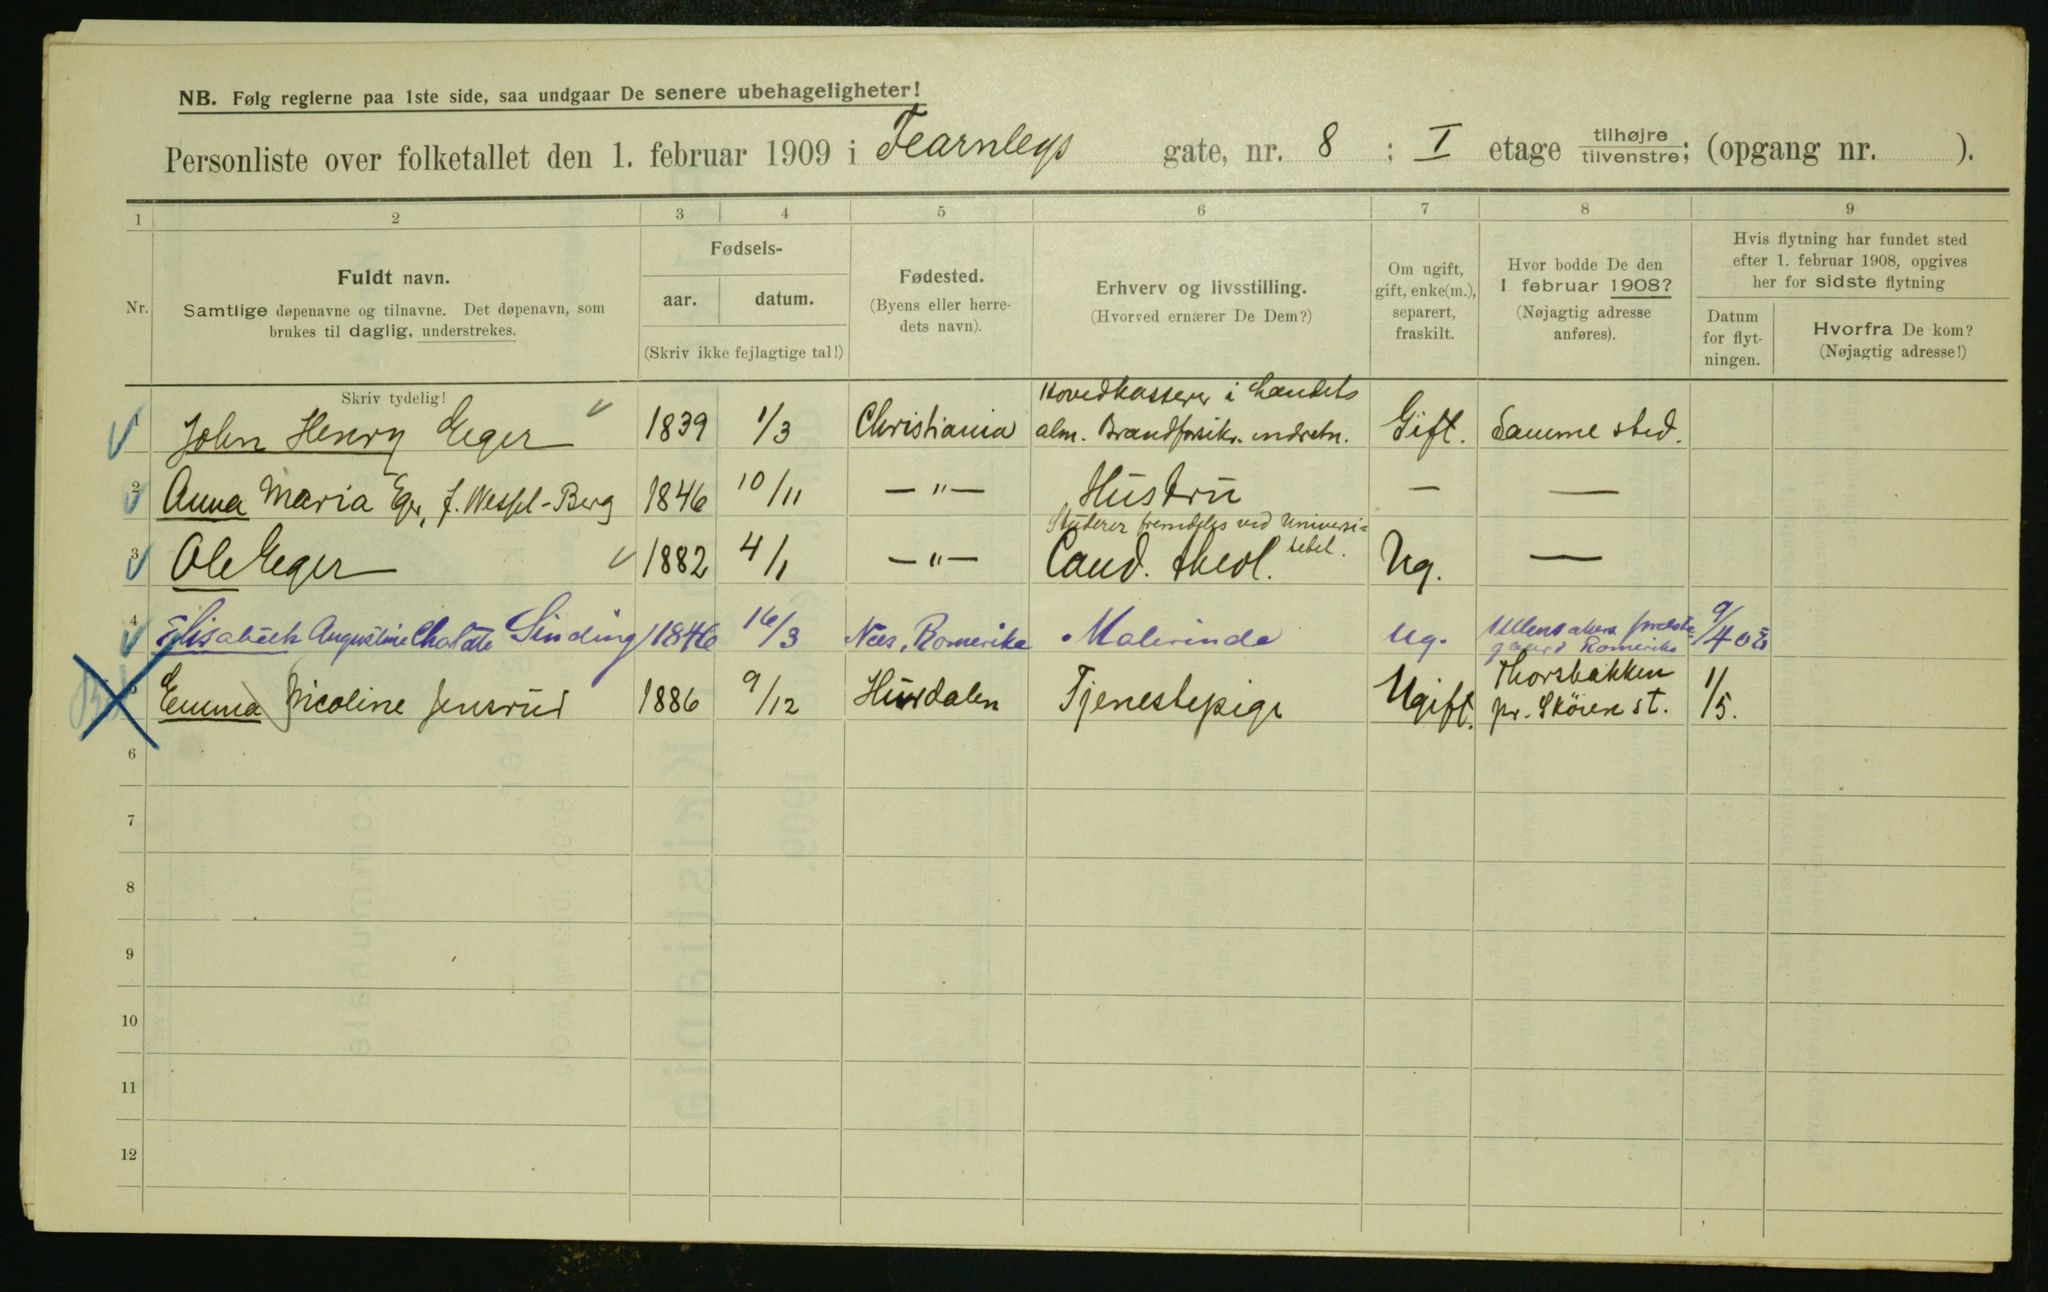 NB. Følg reglerne paa 1ste side, saa undgaar De senere ubehageligheter!
Personliste over folketallet den 1. februar 1909 i Fearnleys gate, nr. 8 ; I etage tilhøjre/tilvenstre; (opgang nr. ).
1 2 3 4 5 6 7 8 9
Nr. Fuldt navn. Samtlige døpenavne og tilnavne. Det døpenavn, som
brukes til daglig, understrekes.
Fødsels-
aar. datum.
(Skriv ikke fejlagtige tal!)
Fødested.
(Byens eller herre-
dets navn).
Erhverv og livsstilling.
(Hvorved ernærer De Dem?)
Om ugift,
gift, enke(m.),
separert,
fraskilt.
Hvor bodde De den
1 februar 1908?
(Nøjagtig adresse
anføres).
Hvis flytning har fundet sted
efter 1. februar 1908, opgives
her for sidste flytning
Datum
for flyt-
ningen.
Hvorfra De kom?
(Nøjagtig adresse!)
Skriv tydelig!
Hovedkasserer i Landets
1 John Henry Eger 1839 1/3 Christiania alm. Brandforsikr. indretn. Gift. Samme sted.
2 Anna Maria Eger, f. Wessel-Berg 1846 10/11 — " — Hustru — —
Studerer fremdeles ved Universi-
tetet.
3 Ole Eger 1882 4/1 — " — Cand. theol. Ug. —
4 Elisabeth Augustine Sinding 1846 16/3 Næs, Romerike Malerinde Ug. Ullensakers præste-
gaard Romerike 9/4 08
5 Emma Nicoline Jensrud 1886 9/12 Hurdalen Tjenestepige Ugift. Thorsbakken
pr. Skøien st. 1/5.
6
7
8
9
10
11
12